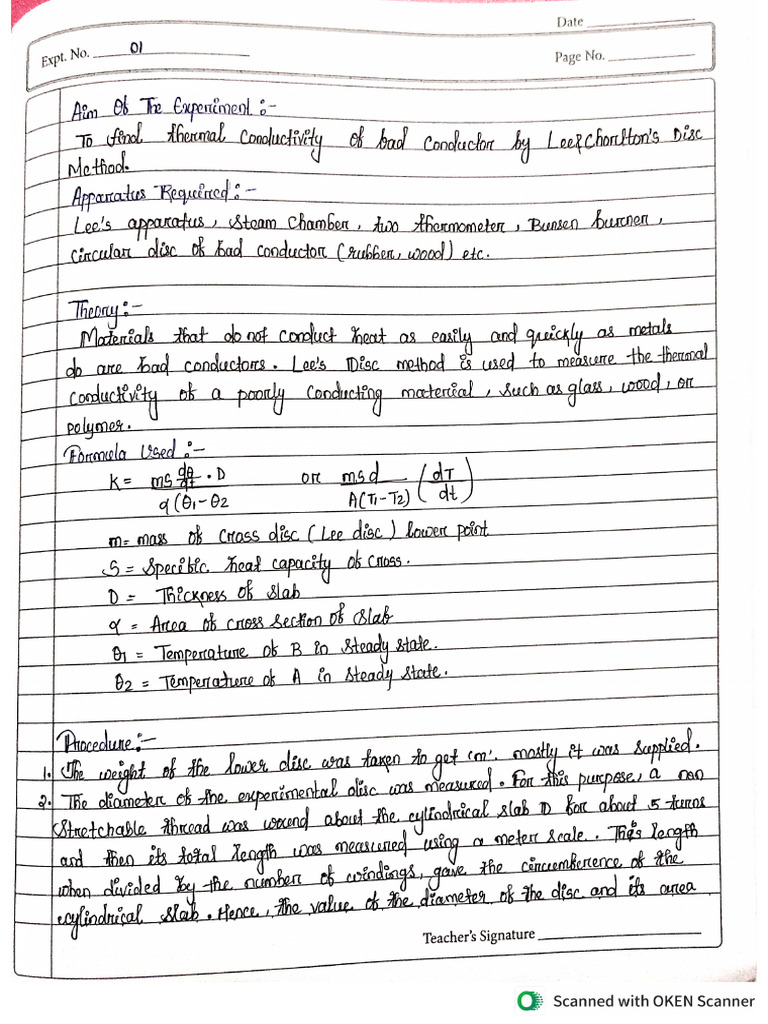 Date
Expt. No. 01
Page No.
Aim Of The Experiment :-
To find thermal conductivity of bad conductor by Lee & Chorlton's Disc
Method.
Apparatus Required :-
Lee's apparatus, steam chamber, two thermometer, Bunsen burner,
circular disc of bad conductor (rubber, wood) etc.
Theory :-
Materials that do not conduct heat as easily and quickly as metals
do are bad conductors. Lee's Disc method is used to measure the thermal
conductivity of a poorly conducting material, such as glass, wood, or
polymer.
Formula Used :-
K = ms dθ/dt · D / α(θ1-θ2 or msd / A(T1-T2) (dT/dt)
m = mass of cross disc (Lee disc) lower point
S = Specific heat capacity of cross.
D = Thickness of slab
α = Area of cross section of slab
θ1 = Temperature of B in steady state.
θ2 = Temperature of A in steady state.
Procedure :-
1. The weight of the lower disc was taken to get 'm'. mostly it was supplied.
2. The diameter of the experimental disc was measured. For this purpose, a non
stretchable thread was wound about the cylindrical slab D for about 5 turns
and then its total length was measured using a meter scale. This length
when divided by the number of windings, gave the circumference of the
cylindrical slab. Hence, the value of the diameter of the disc and its area
Teacher's Signature
Scanned with OKEN Scanner